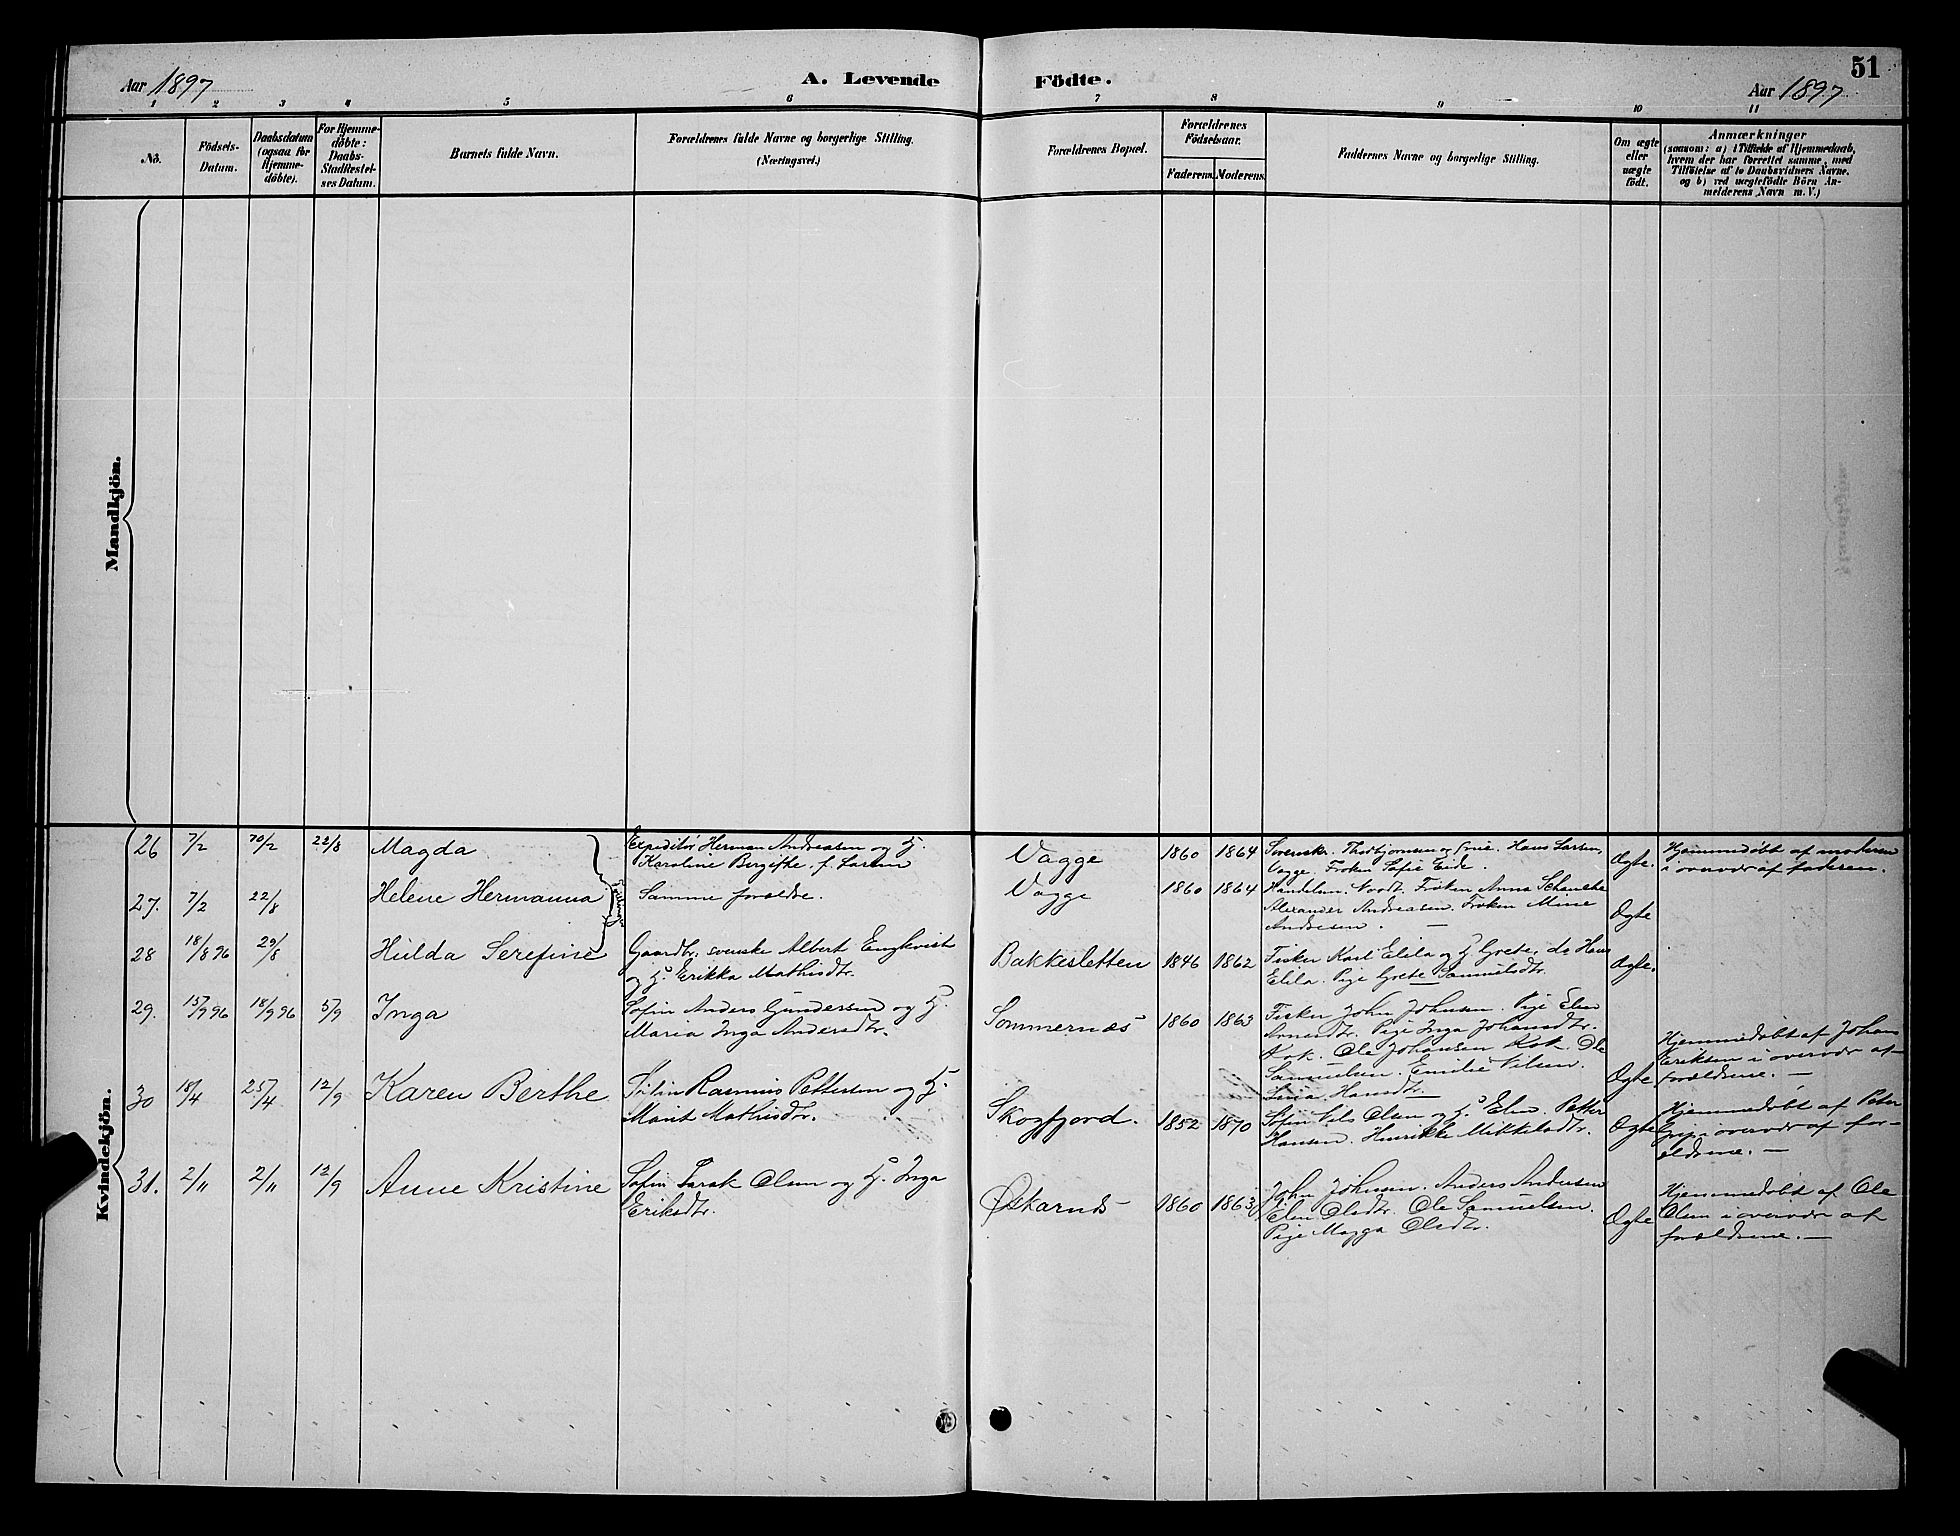 Aar 1897
A. Levende Födte.
Aar 1897.
51
1 2 3 4 5 6 7 8 9 10 11
No.
Födsels-
Datum.
Daabsdatum
(ogsaa for
Hjemme-
döbte).
For Hjemme-
döbte:
Daabs-
Stadfæstel-
ses Datum.
Barnets fulde Navn.
Forældrenes fulde Navne og borgerlige Stilling.
(Næringsvei.)
Forældrenes Bopæl.
Forældrenes
Födselsaar.
Faderens. Moderens.
Faddernes Navne og borgerlige Stilling.
Om ægte
eller
uægte
födt.
Anmærkninger
(saasom: a) i Tilfælde af Hjemmedaab,
hvem der har forrettet samme, med
Tilföielse af to Daabsvidners Navne.
og b) ved uægtefödte Börn An-
melderens Navn m. V.)
Mandkjön.
Kvindekjön.
26 7/2 10/2 22/8 Magda
Expeditør Herman Andreasen og H.
Karoline Bergithe f. Larsen
Vagge 1860 1864
Thorbjørnsen og frue. Hans Larsen,
Vagge. Frøken Sofie Eide.
Ægte.
Hjemmedøbt af moderen
i overvær af faderen.
27. 7/2 22/8 Helene Hermanna
Samme forældre.
Vagge 1860 1864
Frøken Anna Schancke
Alexander Andreasen. Frøken Mine
Andresen. —
Ægte
28 18/8 96 29/8 Hulda Serefine
Gaardbr. svenske Albert Engkvist
og H. Erikka Mathisdtr.
Bakkesletten 1846 1862
Fisker Karl Elila og H. Grete. do Hans
Elila. Pige Grete Samuelsdtr.
Ægte.
29. 15/9 96 18/9 96 5/9 Inga
Søfin Anders Gundersen og H.
Maria Inga Andersdtr.
Sommernæs 1860 1863
Fisker John Johnsen. Pige Elen
Pige Inga Johansdtr.
Kok. Ole Johansen Kok. Ole
Samuelsen. Emilie Nilsen.
Hansdtr.
Ægte
Hjemmedøbt af Johans
Eriksen i overvær af
forældrene. —
30 18/4 25/4 12/9 Karen Berthe
Søfin Rasmus Pettersen og H.
Marit Mathisdtr.
Skogfjord. 1852 1870
Søfin Nils Olsen og H. Elen. Petter
Hansen. Henrikke Mikkelsdtr.
Ægte
Hjemmedøbt af Peter
i overvær af for-
ældrene. —
31. 2/11 2/11 12/9 Anne Kristine
Søfin Tarak Olsen og H. Inga
Eriksdtr.
Øskarnæs 1860 1863
John Johnsen. Anders Andersen
Elen Olsdtr. Ole Samuelsen.
Pige Magga Olsdtr.
Ægte
Hjemmedøbt af Ole
Olsen i overvær af
forældrene. —